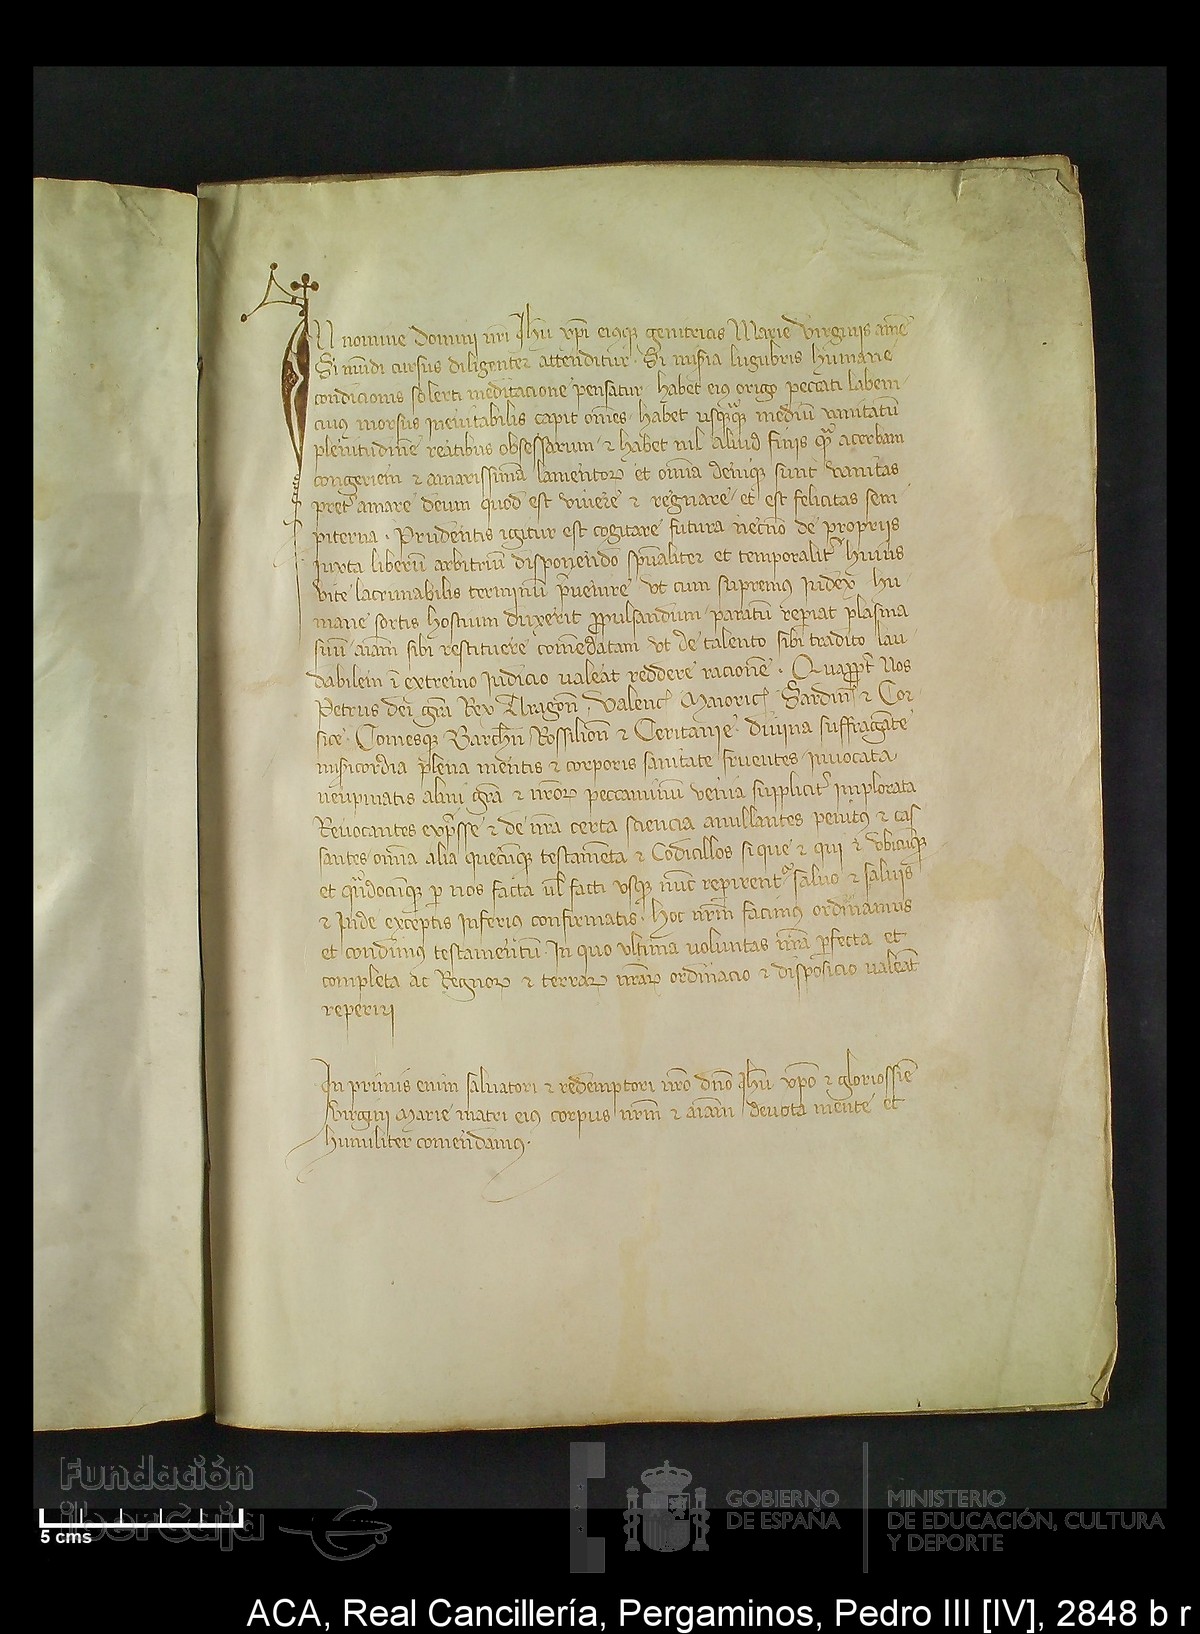 IN nomine Domini nri Ihu xpi eiusque genitricis Marie virginis amē
Si mūdi cursus diligenter attenditur. Si misia lugubris humane
condicionis solerti meditacione pensatur. habet eius origo peccati labem
cuius morsus ineuitabilis capit omēs. habet usqueq̃q mediū vanitatū
plenitudinē reatibus obsessarum. ⁊ habet nil aliud finis q̃ acerbam
congeriem ⁊ amarissimā lamentor̄ et omīa deniq̃ sunt vanitas
pret amare deum quod est viuere ⁊ regnare. et est felicitas sem
piterna. Prudentis igitur est cogitare futura necnō de propriis
iuxta liberū arbitriū disponendo spūaliter et temporalit̃ huius
vite lacrimabilis terminū p̃uenire. vt cum supremus iudex hu
mane sortis hostium duxerit ppulsandum. paratū reperiat plasma
suū. aīam sibi restituere comēdatam. vt de talento sibi tradito lau
dabilem ī extremo iudicio ualeat reddere racionē. Quappt̃ Nos
Petrus dei gr̃a Rex Aragon̄, Valenc̄, Maioric̄, Sardin̄ ⁊ Cor
sice. Comesq̃ Barchn̄, Rossilion̄ ⁊ Ceritanie. diuina suffragāte
misicordia plena mentis ⁊ corporis sanitate fruentes. Inuocata
neupmatis almi gr̃a ⁊ nr̄or̄ peccaminū venia supplicit̃ implorata
Reuocantes exp̃sse ⁊ de nr̃a certa sciencia anullantes penitus ⁊ cas
santes. omīa alia quecūq̃ testamēta ⁊ Codicillos si que ⁊ qui ⁊ vbicūq̃
et q̃ndocūq̃ p nos facta ul̄ facti vsq̃ nūc repirent̃ saluo ⁊ saluis
⁊ inde exceptis inferius confirmatis. hoc nr̄m facimus ordinamus
et condimus testamentū. In quo vltima uoluntas nr̃a pfecta et
completa ac Regnor̄ ⁊ terrar̄ nr̄ar̄ ordinacio ⁊ disposicio ualeat
reperiri
In primis enim saluatori ⁊ redemptori nr̄o dn̄o Ihū xp̄o ⁊ gloriossīe
virgini Marie matri eius corpus nr̄m ⁊ aīam deuota mente et
humiliter comendamus.
Fundación
iberCaja
5 cms
GOBIERNO
DE ESPAÑA
MINISTERIO
DE EDUCACIÓN, CULTURA
Y DEPORTE
ACA, Real Cancillería, Pergaminos, Pedro III [IV], 2848 b r